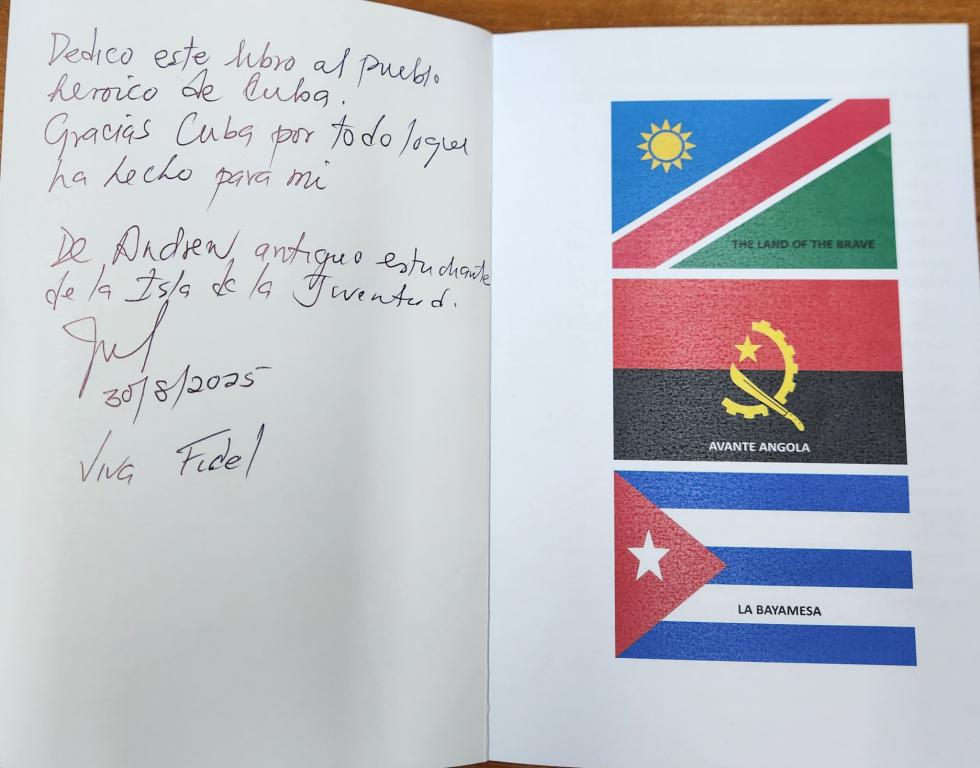 Dedico este libro al pueblo
heroico de Cuba.
Gracias Cuba por todo loque
ha hecho para mi
De Andrew antiguo estudiante
de la Isla de la Juventud.
30/8/2025
Viva Fidel
THE LAND OF THE BRAVE
AVANTE ANGOLA
LA BAYAMESA